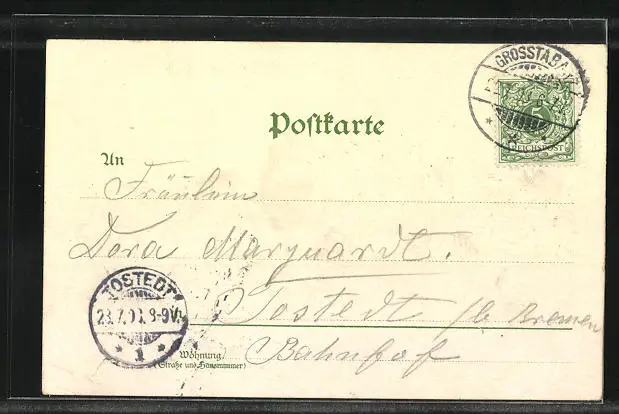 GROSSTABARZ
5
REICHSPOST
Postkarte
An
Fräulein
Dora Marquardt.
TOSTEDT
23.7.00. 8-9V.
* 1 *
Tostedt b/ Bremen
Wohnung
(Straße und Hausnummer)
Bahnhof